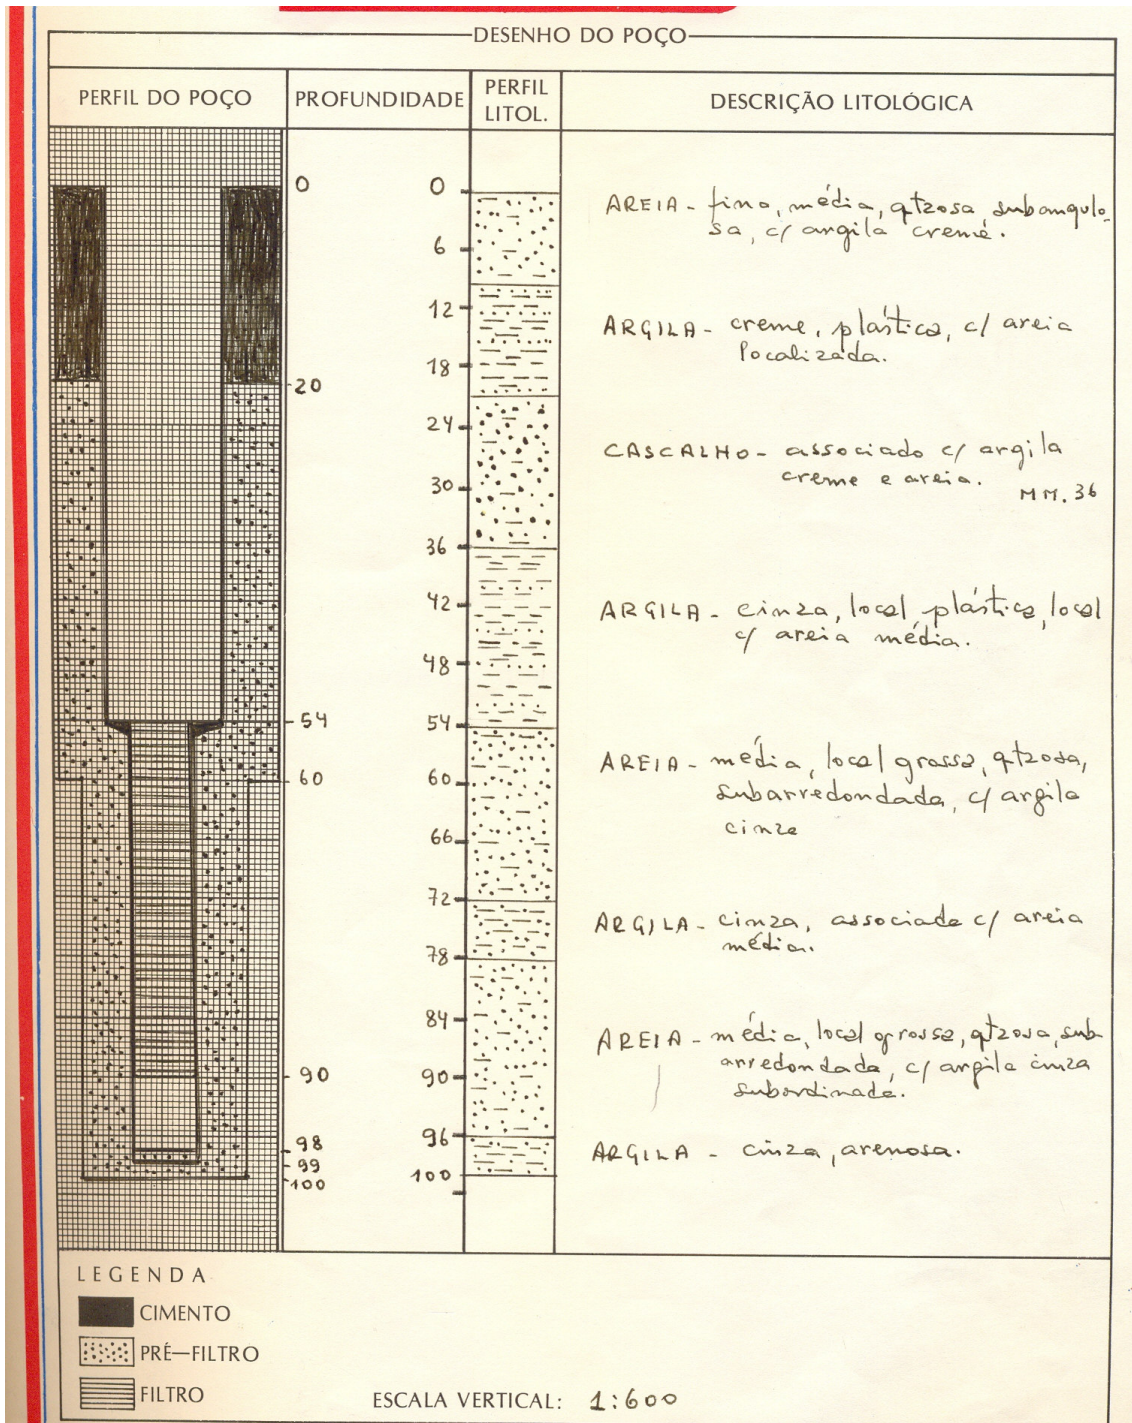 DESENHO DO POÇO
PERFIL DO POÇO
PROFUNDIDADE
PERFIL
LITOL.
DESCRIÇÃO LITOLÓGICA
0
20
54
60
90
98
99
100
0
6
12
18
24
30
36
42
48
54
60
66
72
78
84
90
96
100
AREIA - fina, média, qtzosa, subangulo-
sa, c/ argila creme.
ARGILA - creme, plástica, c/ areia
localizada.
CASCALHO - associado c/ argila
creme e areia.
MM. 36
ARGILA - cinza, local plástica, local
c/ areia média.
AREIA - média, local grossa, qtzosa,
subarredondada, c/ argila
cinza
ARGILA - cinza, associada c/ areia
média.
AREIA - média, local grossa, qtzosa, sub
arredondada, c/ argila cinza
subordinada.
ARGILA - cinza, arenosa.
LEGENDA
CIMENTO
PRÉ-FILTRO
FILTRO
ESCALA VERTICAL: 1:600